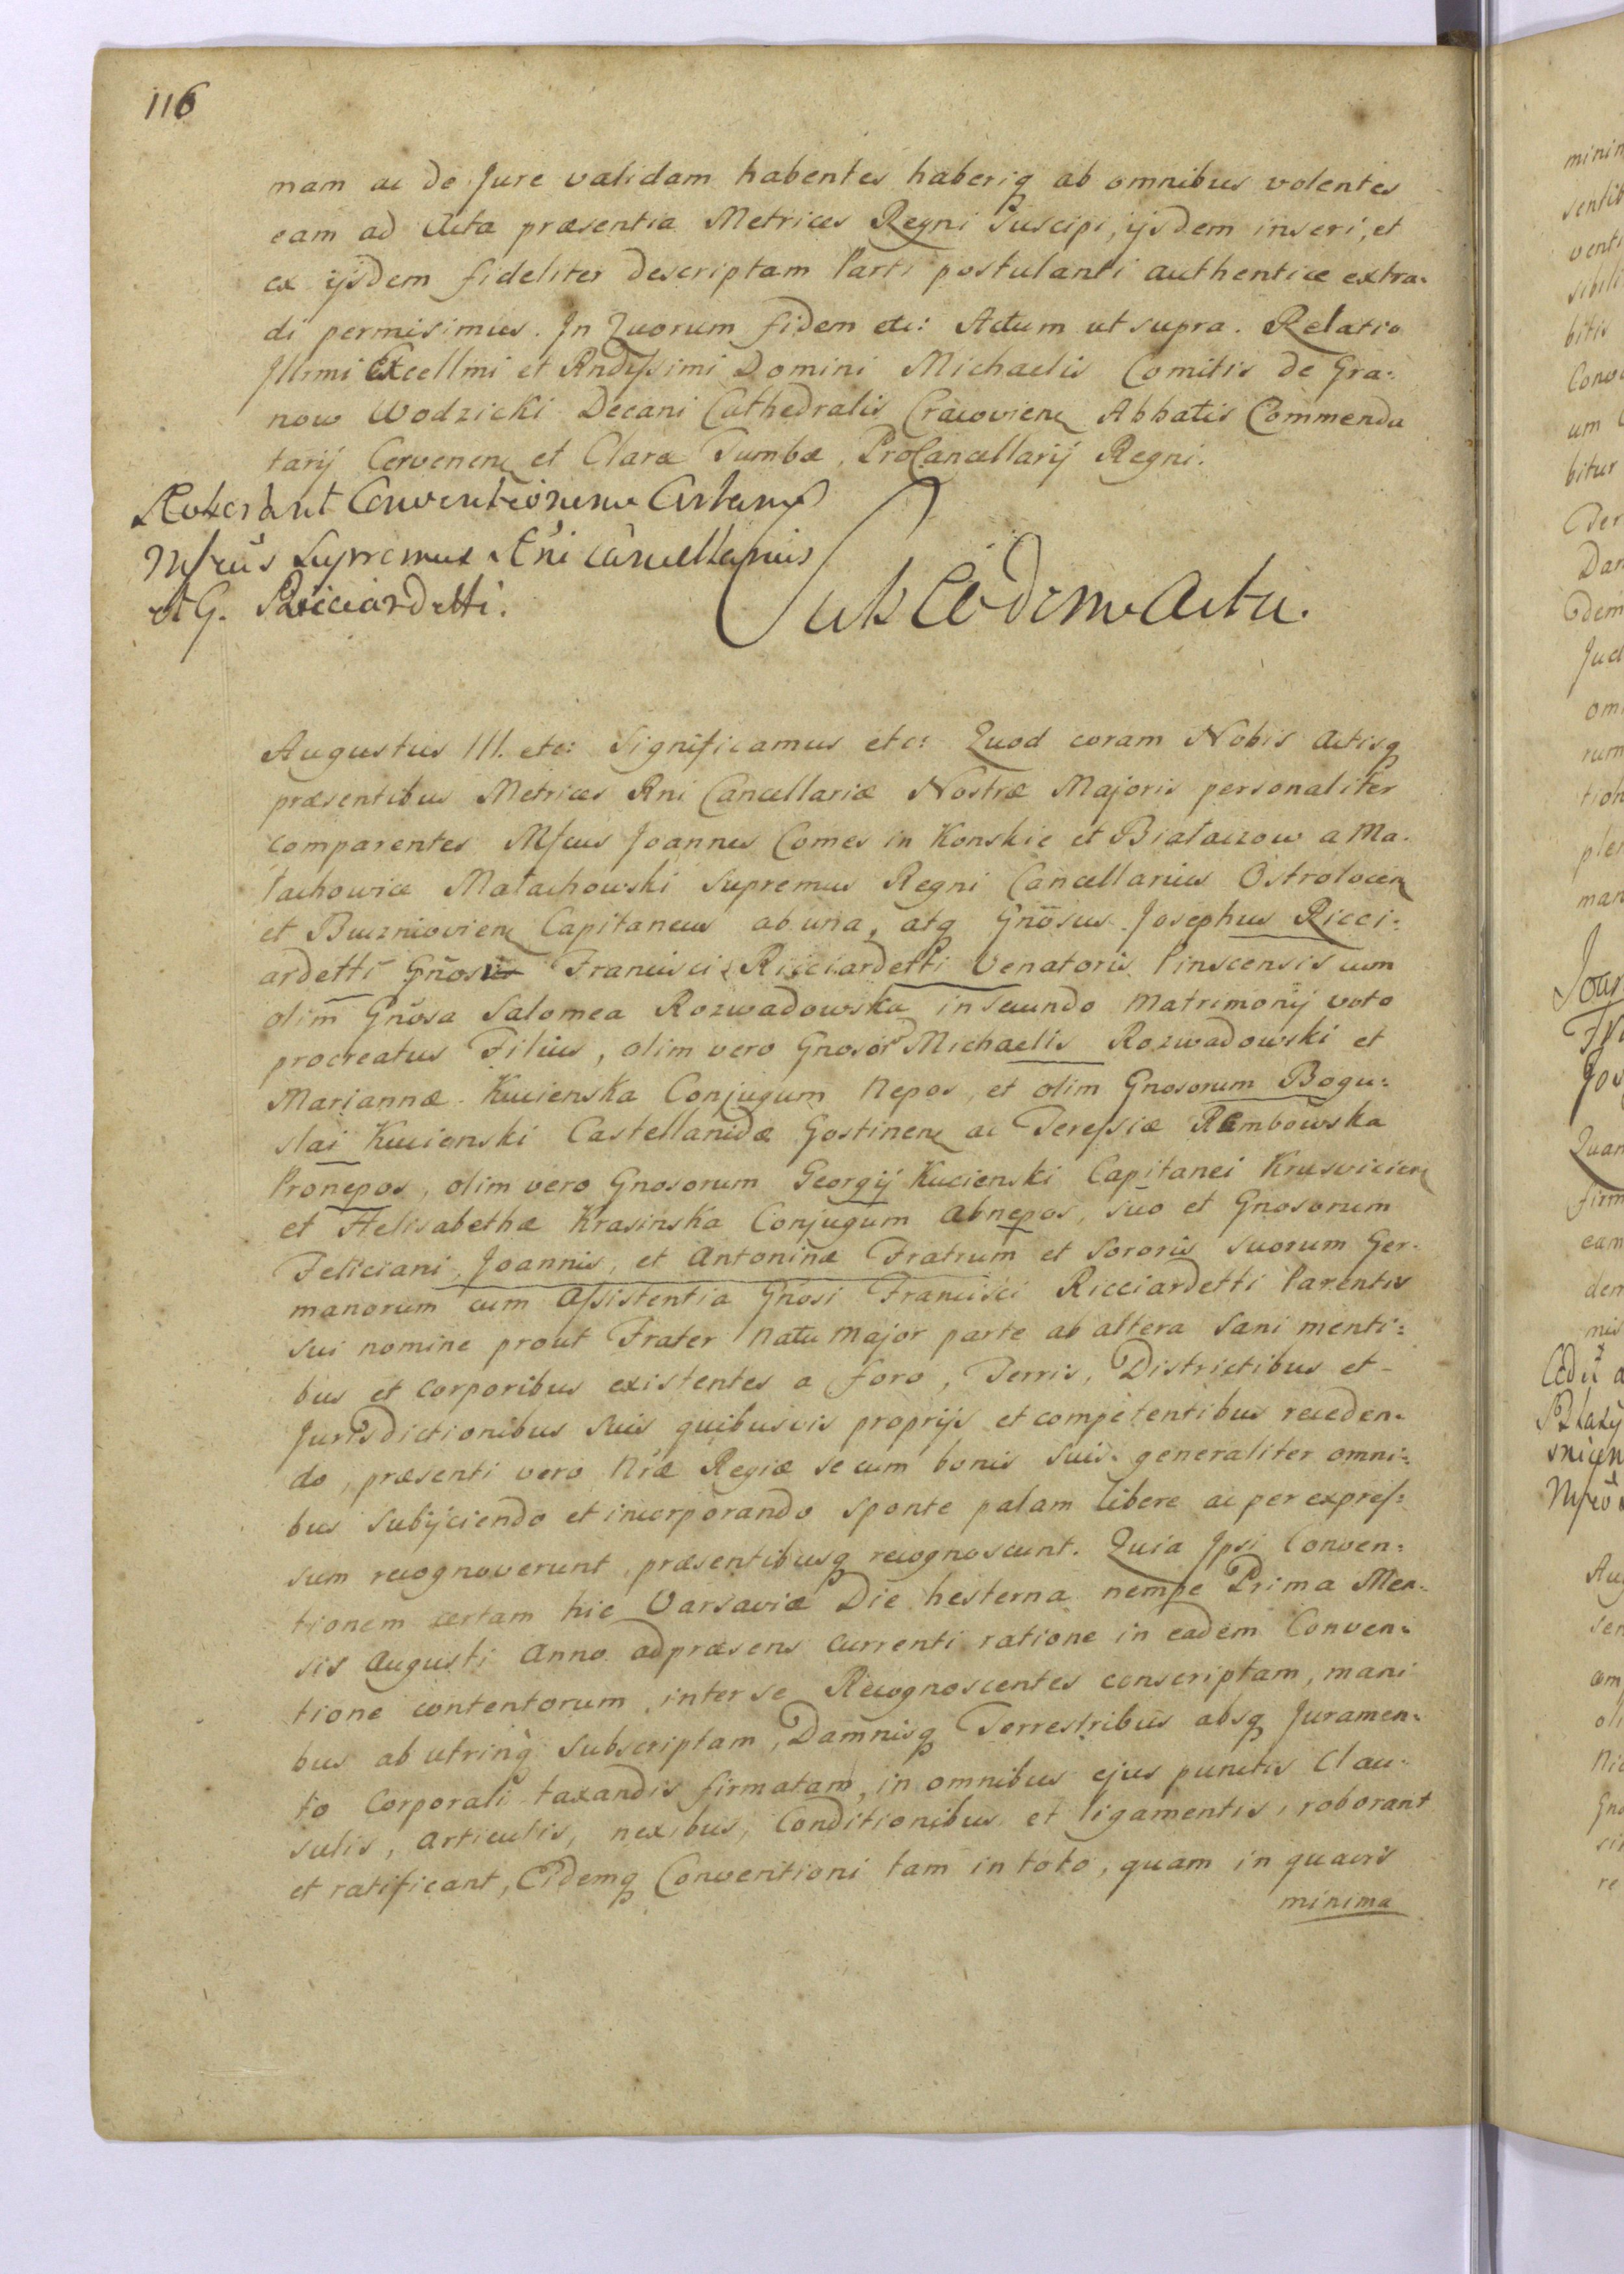 116
nam ac de Jure validam habentes haberiq ab omnibus volentes
eam ad Acta præsentia Metrices Regni suscipi, ijsdem inseri, et
ex ijsdem fideliter descriptam Parti postulanti authentice extra=
di permisimus. In Quorum fidem etc: Actum ut supra. Relatio
Illrmi Excellmi et Rndissimi Domini Michaelis Comitis de Gra=
now Wodzicki Decani Cathedralis Cracovien Abbatis Commenda
tarij Cervenen et Claræ Tumbæ, ProCancellarij Regni.
Roborant Conventionem Certam
Mfcus Supremus Rni Cancellarius
et G. Ricciardetti.
Sub Eodem Actu.
Augustus III. etc: Significamus etc: Quod coram Nobis Actisq
præsentibus Metrices Rni Cancellariæ Nostræ Majoris personaliter
comparentes Mfcus Joannes Comes in Konskie et Białaczow a Ma=
łachowice Małachowski Supremus Regni Cancellarius Ostrolocen
et Buznicovien Capitaneus ab una, atq Gnosus Josephus Ricci=
ardetti Gnosi Francisci Ricciardetti Venatoris Pinscensis cum
olim Gnosa Salomea Rozwadowska in secundo Matrimonij voto
procreatus Filius, olim vero Gnosor Michaelis Rozwadowski et
Mariannæ Kucienska Conjugum Nepos, et olim Gnosorum Bogu=
slai Kucienski Castellanidæ Gostinen ac Teressiæ Rembowska
Pronepos, olim vero Gnosorum Georgij Kucienski Capitanei Krusvicien
et Helisabethæ Krasinska Conjugum Abnepos, suo et Gnosorum
Feliciani, Joannis, et Antoninæ Fratrum et Sororis suorum Ger=
manorum cum Assistentia Gnosi Francisci Ricciardetti Parentis
sui nomine prout Frater Natu Major parte ab altera Sani menti=
bus et corporibus existentes a foro, Terris, Districtibus et
Jurisdictionibus suis quibusvis proprijs et competentibus receden=
do, præsenti vero Niæ Regiæ se cum bonis suis generaliter omni=
bus subijciendo et incorporando sponte palam libere ac per expres=
sum recognoverunt, præsentibusq recognoscunt. Quia Ipsi Conven=
tionem certam hic Varsaviæ Die hesterna nempe Prima Men=
sis Augusti Anno ad præsens currenti ratione in eadem Conven=
tione contentorum, inter se Recognoscentes conscriptam, mani
bus ab utrinq subscriptam, Damnisq Terrestribus absq Juramen=
to Corporali taxandis firmatam, in omnibus ejus punctis Clau=
sulis, Articulis, nexibus, Conditionibus et ligamentis, roborant
et ratificant, Eidemq Conventioni tam in toto, quam in quavis
minima